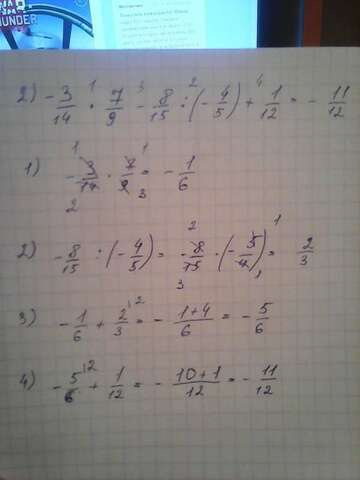 UNDER
2) - 3/14 · 7/9 - 8/15 : (- 4/5) + 1/12 = - 11/12
1) - 3/14 · 7/9 = - 1/6
2) - 8/15 : (- 4/5) = - 8/15 · (- 5/4) = 2/3
3) - 1/6 + 2/3 = - 1+4/6 = - 5/6
4) - 5/6 + 1/12 = - 10+1/12 = - 11/12